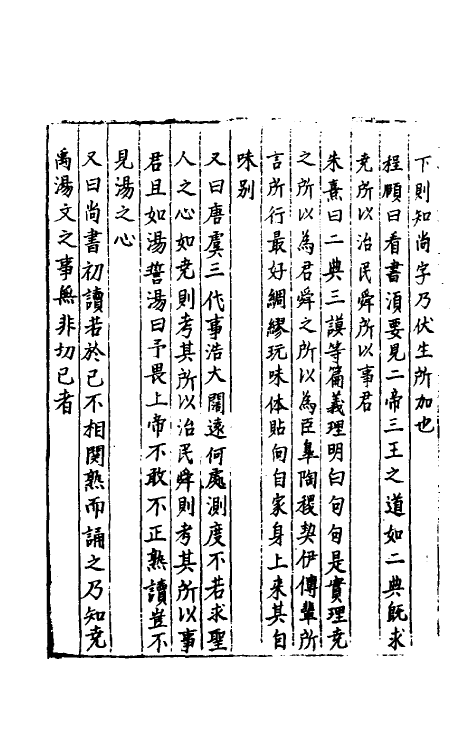 下則知尚字乃伏生所加也
程頤曰看書湏要見二帝三王之道如二典旣求
尭所以治民舜所以事君
朱熹曰二典三謨等篇義理明白句句是實理尭
之所以為君舜之所以為臣臯陶稷契伊傅輩所
言所行最好綢繆玩味体貼向自家身上来其自
味别
又曰唐虞三代事浩大闊遠何處測度不若求聖
人之心如尭則考其所以治民舜則考其所以事
君且如湯誓湯曰予畏上帝不敢不正熟讀豈不
見湯之心
又曰尚書初讀若於己不相関熟而誦之乃知尭
禹湯文之事無非切已者